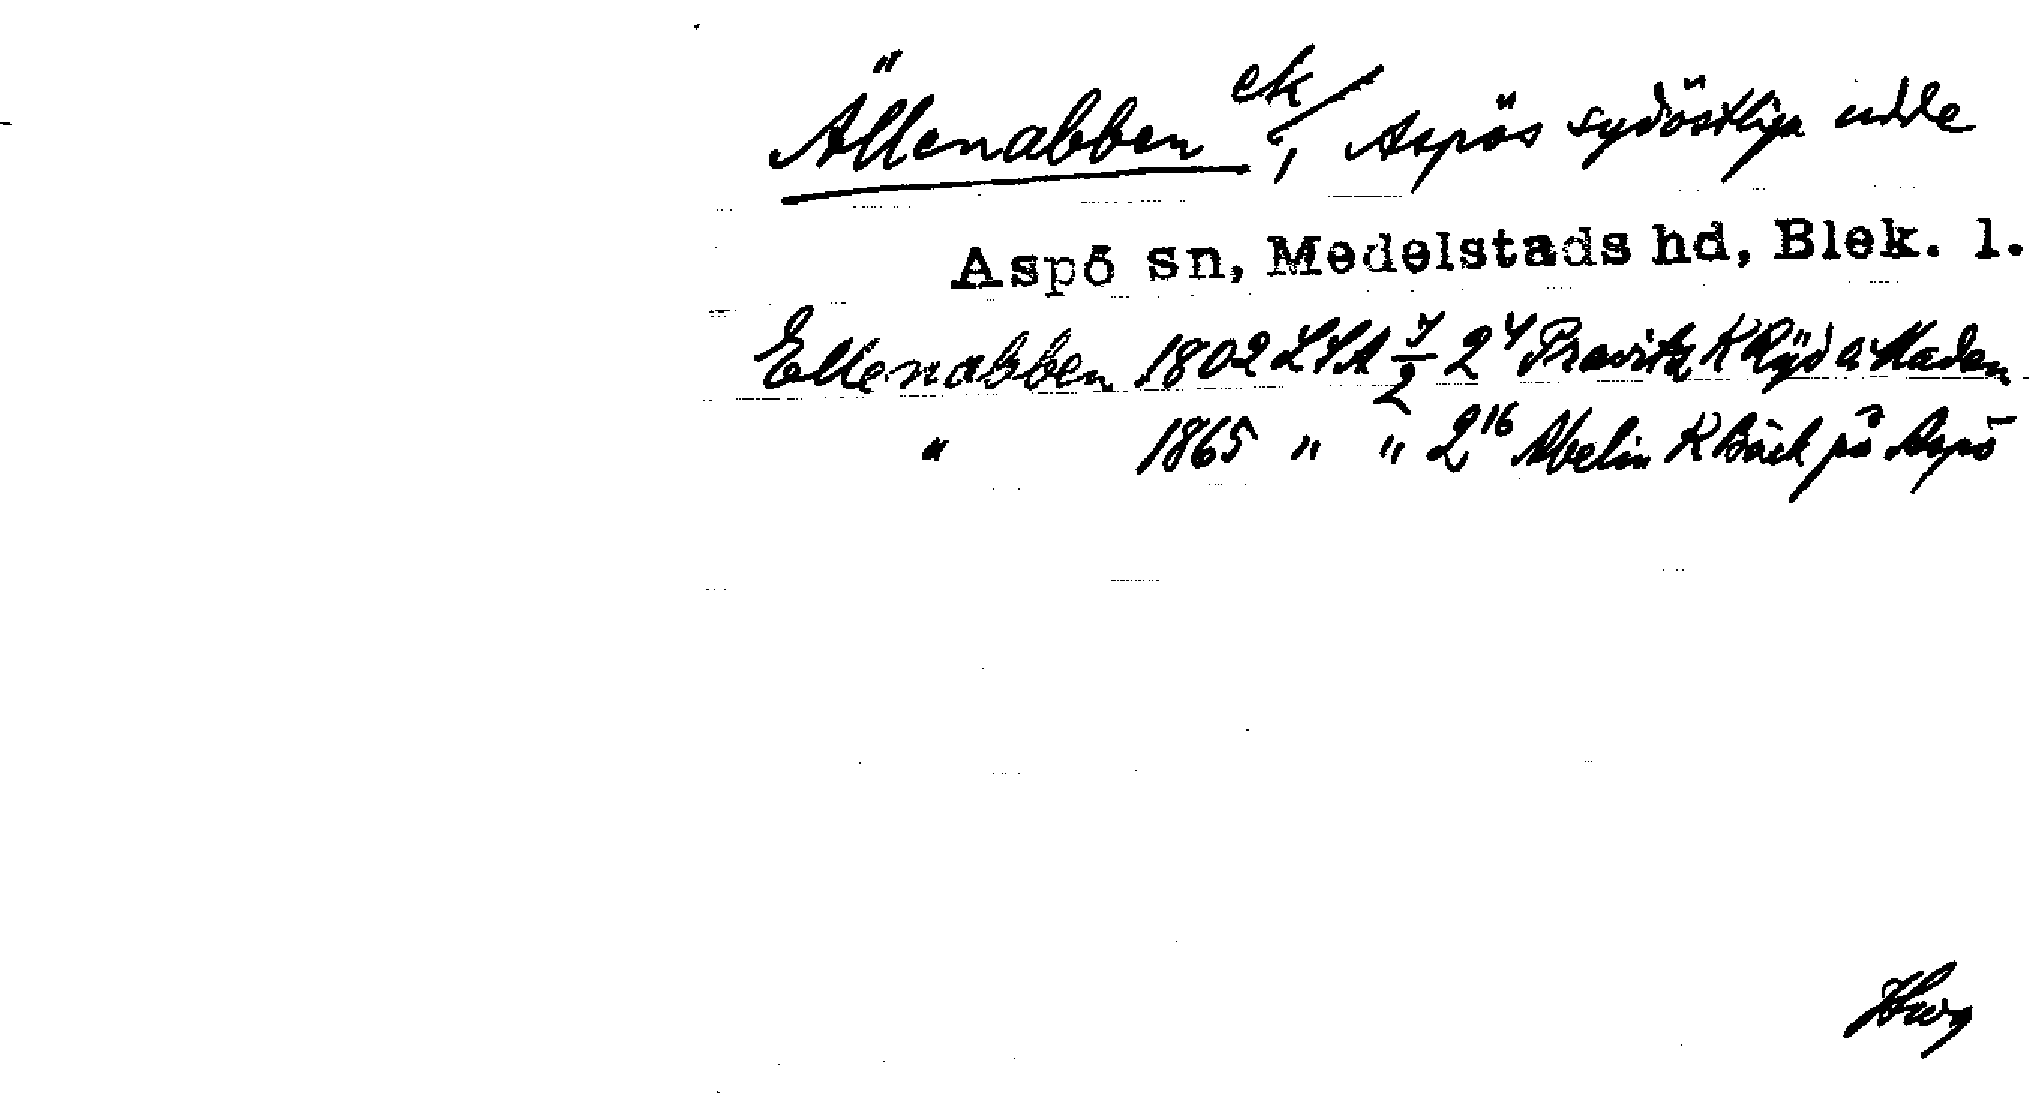 Ällenabben ek/, Aspös sydöstliga udde
Aspö sn, Medelstads hd, Blek. l.
Ellenabben 1802 LSA 7/2 2⁴ Pravitz K Ryd a Maden
" 1865 " " 2¹⁶ Abelin K Bäck på Aspö